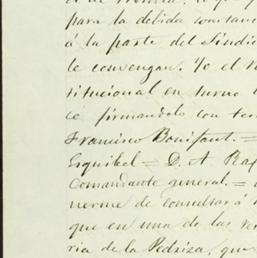 para la debida constan
á la parte del Sindic
le convengan. Yo el
stitucional en turno
ce firmandolo con te
Francisco Bonifant. =
Esquibel = D. A.
Comandante general. =
nerme de consultar á
que en una de las
ria de la Pedriza, que